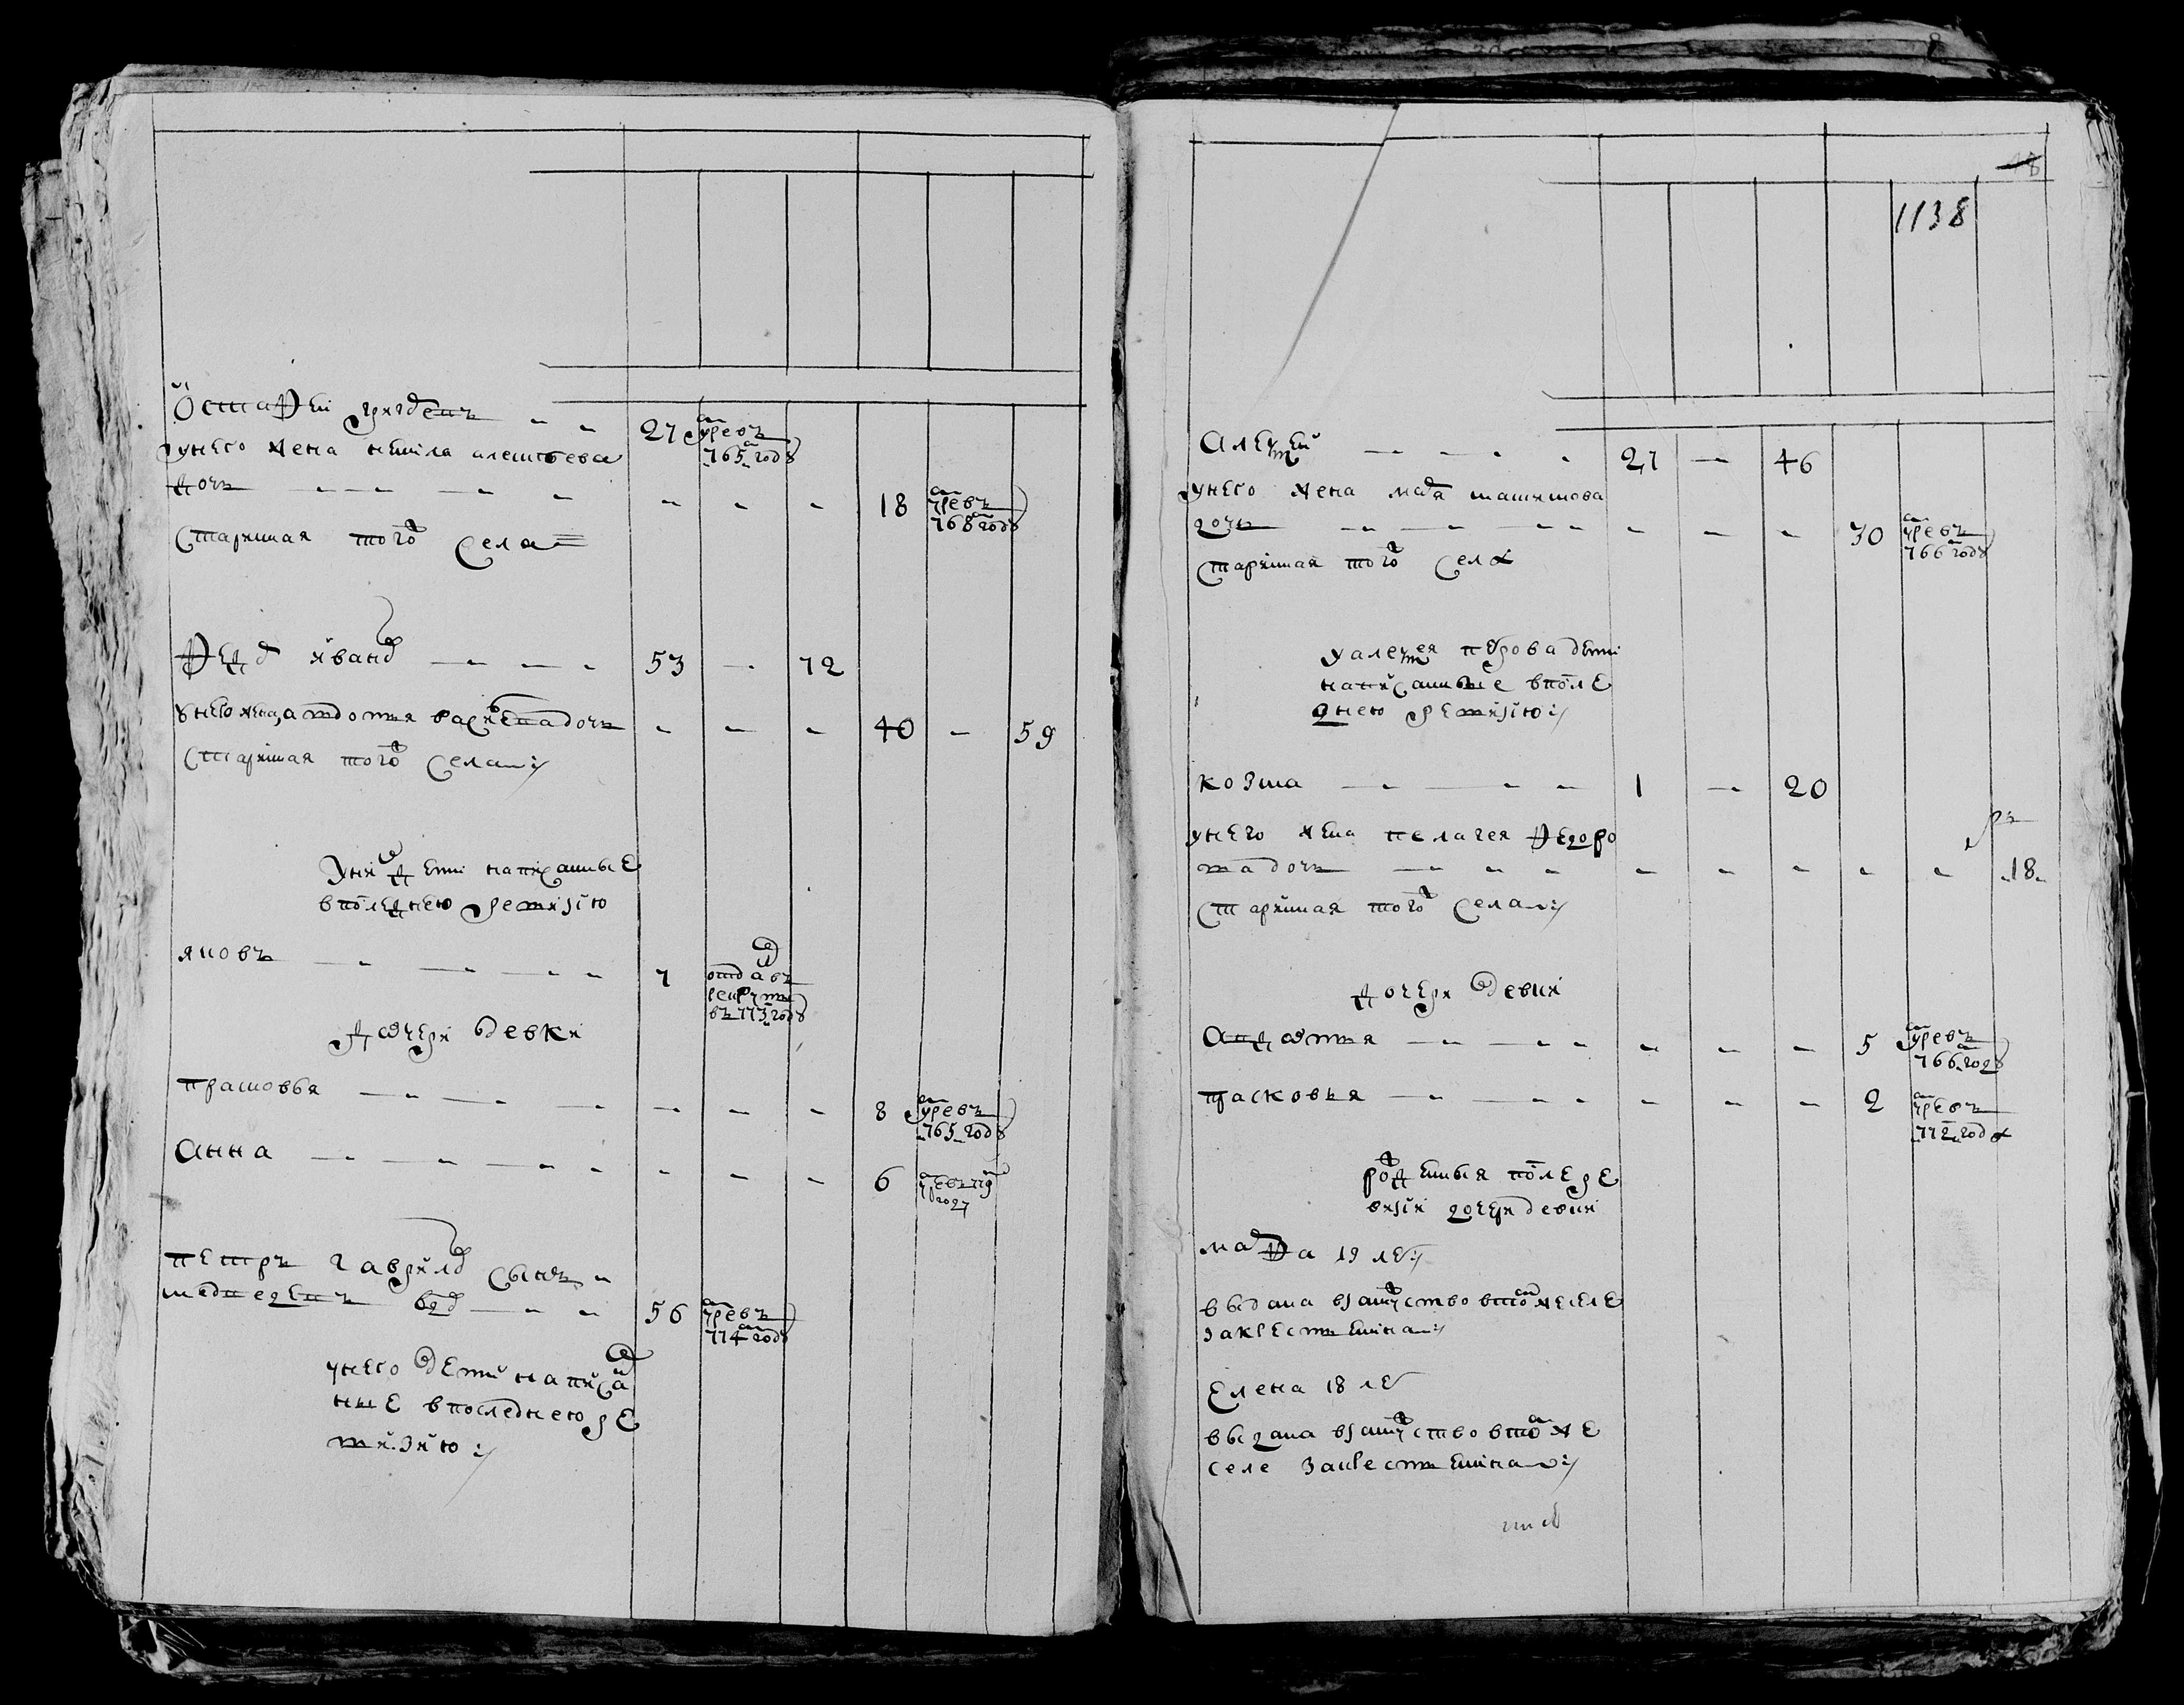 Остафеи гридень 27 умре въ
765 году
у него жена ненила алексеева
дочь 18 умре въ
768 году
старинная того села
Федор иванов 53 72
у него жена авдотья васильева дочь 40 59
старинная того села
у них дети написанные
в последнею ревизию
яковъ 7 отдан въ
рекруты
въ 773 году
дочери девки
прасковья 8 умре въ
765 году
Анна 6
петръ гаврилов сынъ
медведевъ вдов 56 умре въ
774 году
у него дети написан
ные в последнею ре
визию
1138
Алексеи 27 46
у него жена матвеева
дочь 30 умре въ
766 году
старинная того села
у алексея петрова дети
написанные в после
днею ревизию
козма 1 20
у него жена пелагея Федоро
ва дочь 18
старинная того села
дочери девки
Авдотья 5 умре въ
766 году
прасковья 2 умре въ
772 года
рожденныя после ре
визии дочери девки
марфа 19 лет
выдана в замужство в том же селе
за крестьянина
Елена 18 лет
выдана в замужство в том же
селе за крестьянина